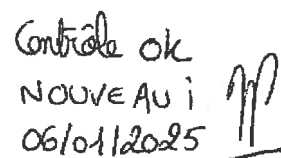 Contrôle ok
NOUVEAU i
06/01/2025